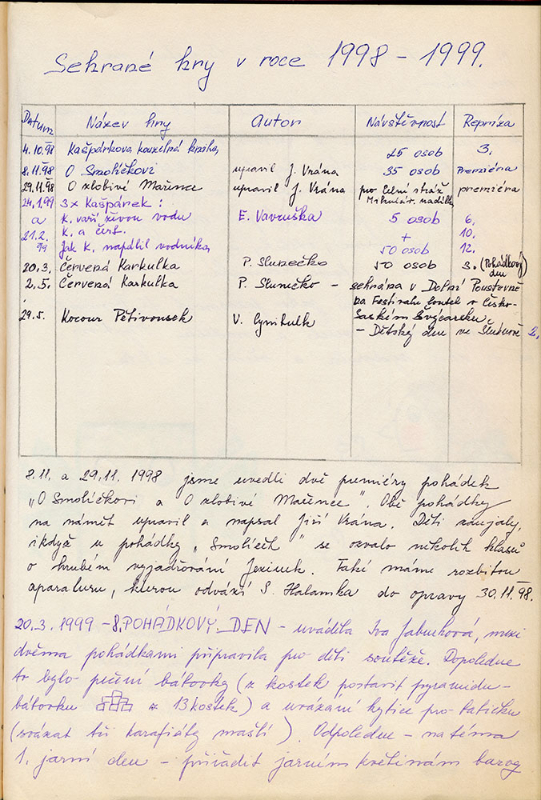 Sehrané hry v roce 1998 - 1999.
Datum Název hry Autor Návštěvnost Repríza
4.10.98 Kašpárkova kouzelná kniha, 25 osob 3.
8.11.98 O Smolíčkovi upravil J. Vrána 35 osob Premiéra
29.11.98 O zlobivé Mařence upravil J. Vrána pro Celní stráž premiéra
24.1.99 3x Kašpárek: Mikuláš. nadílka
a K. vaří živou vodu E. Vavruška 5 osob 6.
21.2. K. a čert + 10.
99 Jak K. napálil vodníka, 50 osob 12.
20.3. Červená Karkulka P. Slunečko 50 osob 3. (Pohádkový den
2.5. Červená Karkulka P. Slunečko - sehrána v Dolní Poustevně
na Festivalu loutek v Česko-
29.5. Kocour Pětivousek V. Cynibulk Saském Švýcarsku.
- Dětský den ve Sluknově 2.
8.11. a 29.11. 1998 jsme uvedli dvě premiéry pohádek
„O Smolíčkovi a O zlobivé Mařence". Obě pohádky
na námět upravil a napsal Jiří Vrána. Děti zaujaly,
ikdyž u pohádky „Smolíček" se ozvalo několik hlasů
o hrubém vyjadřování Jezinek. Také máme rozbitou
aparaturu, kterou odváží S. Halamka do opravy 30.11.98.
20.3.1999 - 8. POHÁDKOVÝ DEN - uváděla Iva, mezi
dvěma pohádkami připravila pro děti soutěže. Dopoledne
to bylo pečení bábovky (z kostek postavit pyramidu-
bábovku z 13 kostek) a uvázaní kytice pro babičku
(svázat tři karafiáty mašlí). Odpoledne - na téma
1. jarní den - přiřadit jarním květinám barvy